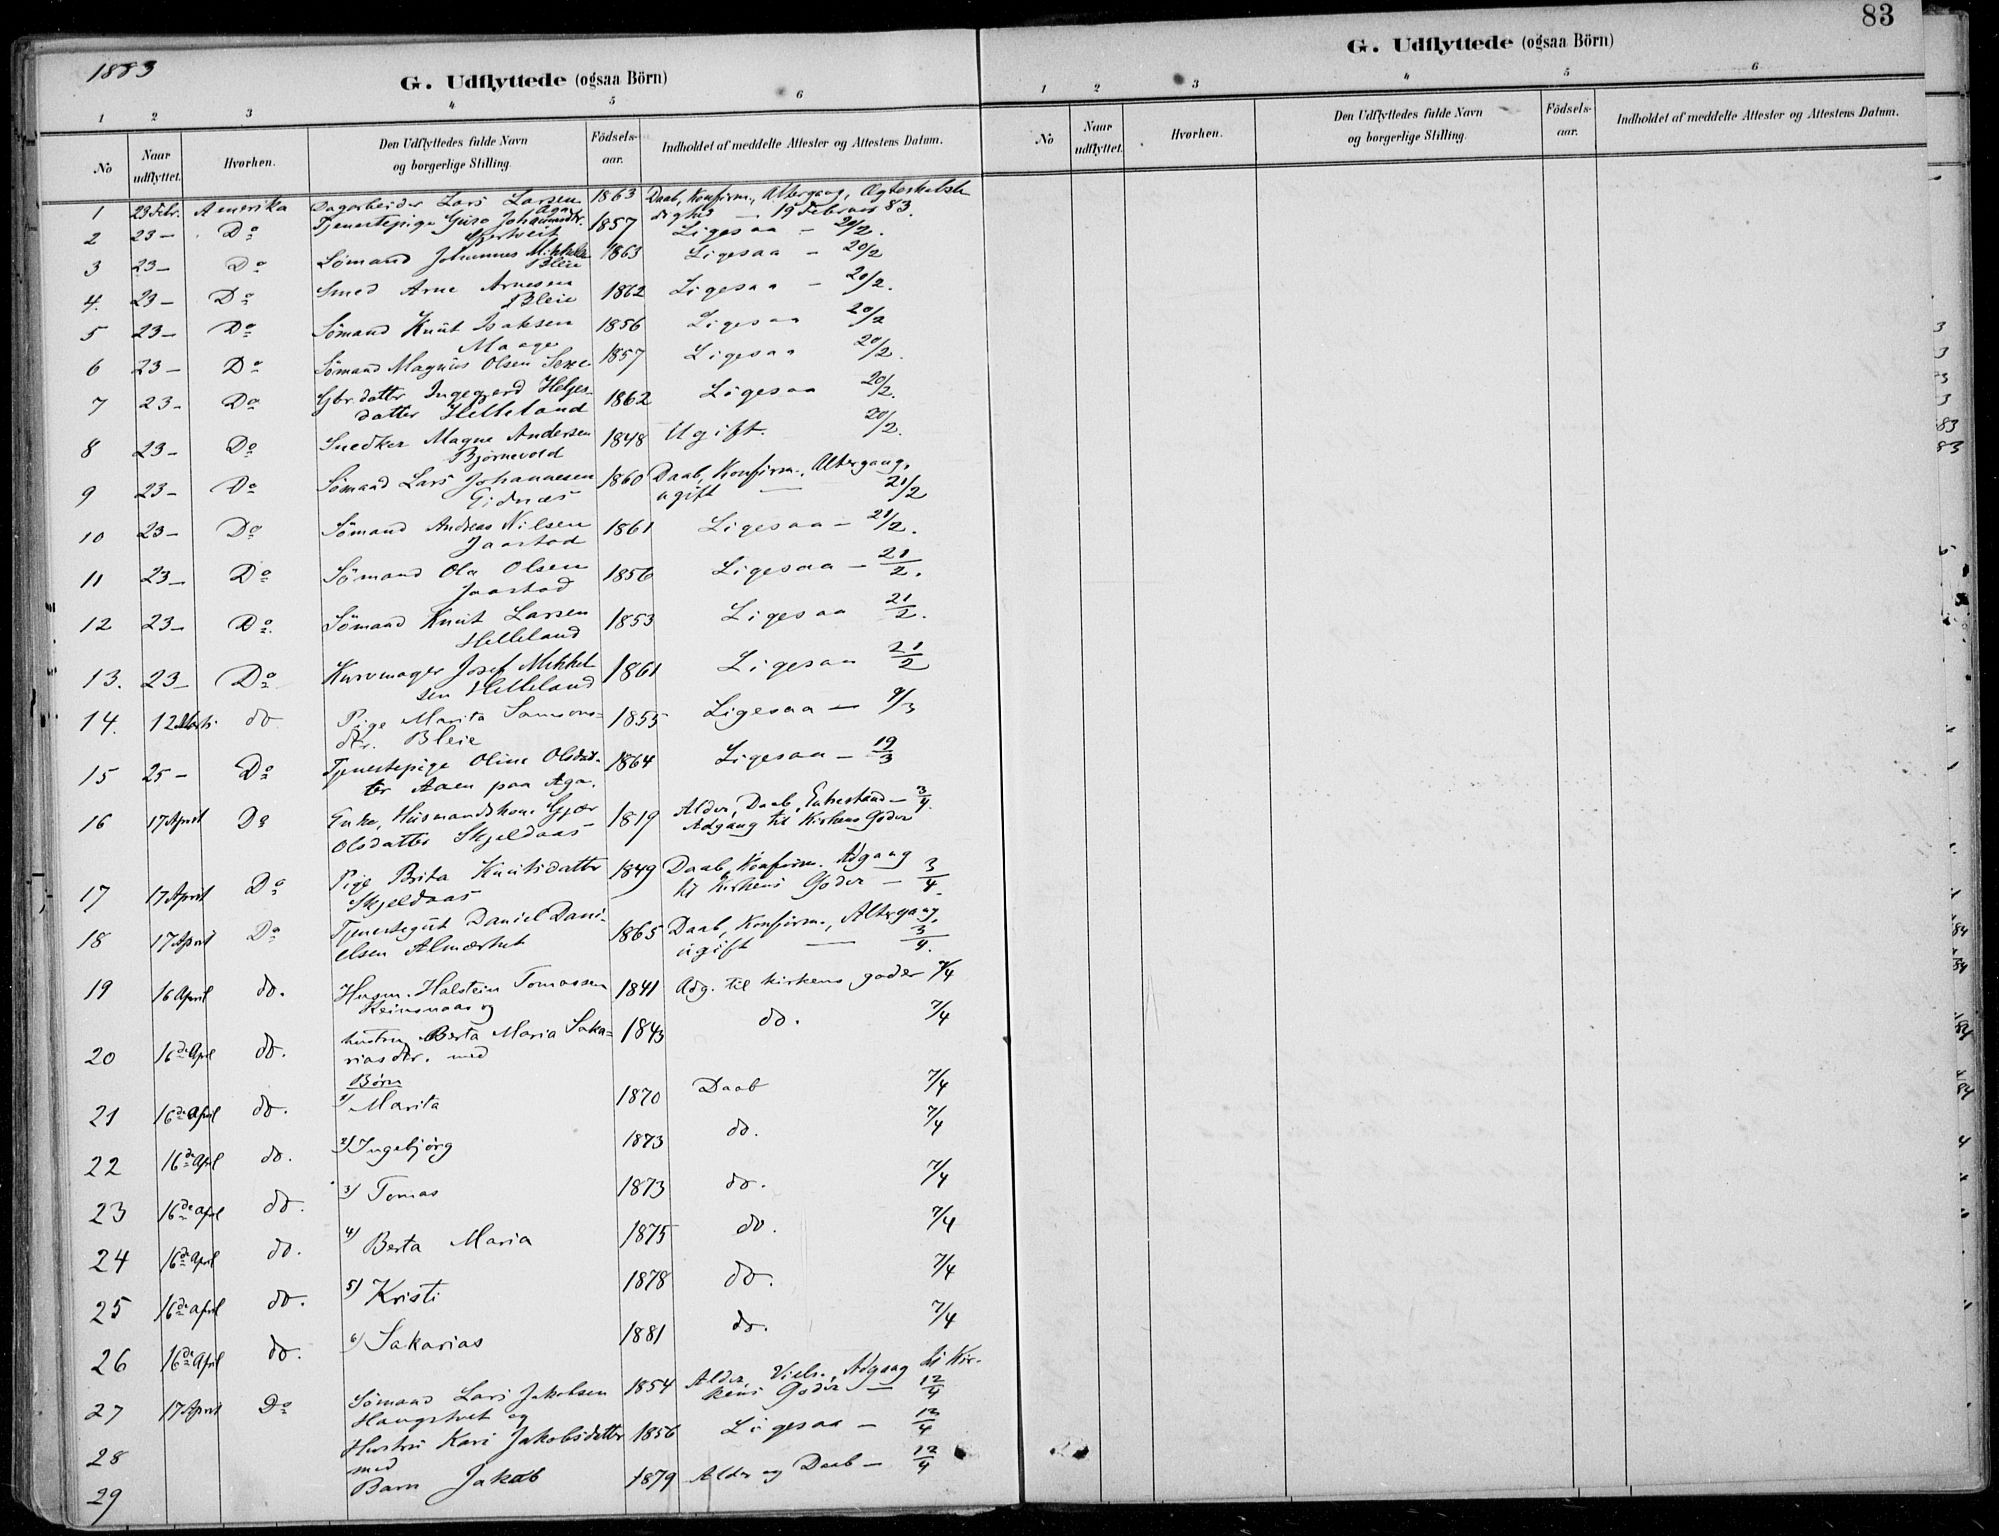 1883
G. Udflyttede (ogsaa Börn)
1 2 3 4 5 6
No
Naar udflyttet.
Hvorhen.
Den Udflyttedes fulde Navn og borgerlige Stilling.
Födsels-aar.
Indholdet af meddelte Attester og Attestens Datum.
1 23 Febr. Amerika Dagarbeider Lars Larsen Aga 1863 Daab, Konfirm., Altergang, Ægteskabsle
dighed — 19 Februar 83.
2 23 — Do Tjenestepige Guro Johannesdtr. 1857 Ligesaa — 20/2.
3 23 — Do Sømand Johannes Mikkels. 1863 Ligesaa — 20/2
Bleie
4. 23 — Do Smed Arne Arnesen 1862 Ligesaa — 20/2.
Bleie
5 23 — Do Sømand Knut Isaksen 1856 Ligesaa 20/2
Maage
6 23 — Do Sømand Magnus Olsen Sexe 1857 Ligesaa 20/2.
7 23 — Do Gbr. datter Ingegjerd Helges- 1862 Ligesaa 20/2.
datter Helleland
8 23 — Do Snedker Magne Andersen 1848 Ugift. 20/2.
Bjørnevold
9 23 — Do Sømand Lars Johannesen 1860 Daab, Konfirm., Altergang,
Eidnæs ugift — 21/2
10 23 — Do Sømand Andreas Nilsen 1861 Ligesaa — 21/2.
Jaastad
11 23 — Do Sømand Ola Olsen 1856 Ligesaa — 21/2.
Jaastad
12 23 — Do Sømand Knut Larsen 1853 Ligesaa 21/2.
Helleland
13. 23 — Do Kurvmager Josef Mikkel- 1861 Ligesaa 21/2
sen Helleland
14. 12 Marts do Pige Marita Samsons- 1855 Ligesaa — 9/3
dtr. Bleie
15 25 — Do Tjenestepige Oline Olsdat- 1864 Ligesaa — 19/3
ter Aaen paa Aga.
16 17 April Do Enke, Husmandskone Gjør 1819 Alder, Daab, Enkestand — 3/4.
Olsdatter Skjeldaas Adgang til Kirkens Goder
17 17 April Do Pige Brita Knutsdatter 1849 Daab, Konfirm. Adgang
Skjeldaas til Kirkens Goder — 3/4.
18 17 April Do Tjenestegut Daniel Dani- 1865 Daab, Konfirm., Altergang,
elsen Almærket ugift — 3/4.
19 16 April do. Husm. Halstein Tomassen 1841 Adg. til kirkens goder 7/4
Reinsnaas og
20 16de Apl do. hustru Berta Maria Saka- 1843 do. 7/4
riasdtr. med
Børn
21 16de April do. 1) Marita 1870 Daab 7/4
22 16de April do. 2) Ingebjørg 1873 do. 7/4
23 16de April do. 3) Tomas 1873 do. 7/4
24 16de April do. 4) Berta Maria 1875 do. 7/4
25 16de April do. 5) Kristi 1878 do. 7/4
26 16de April do. 6) Sakarias 1881 do. 7/4
27 17 April Do Sømand Lars Jakobsen 1854 Alder, Vielse, Adgang til Kir-
Haugstvet og kens Goder — 12/4
28 Hustru Kari Jakobsdatter 1856 Ligesaa — 12/4
med
29 Barn Jakob 1879 Alder og Daab — 12/4
83
G. Udflyttede (ogsaa Börn)
1 2 3 4 5 6
No
Naar udflyttet.
Hvorhen.
Den Udflyttedes fulde Navn og borgerlige Stilling.
Födsels-aar.
Indholdet af meddelte Attester og Attestens Datum.